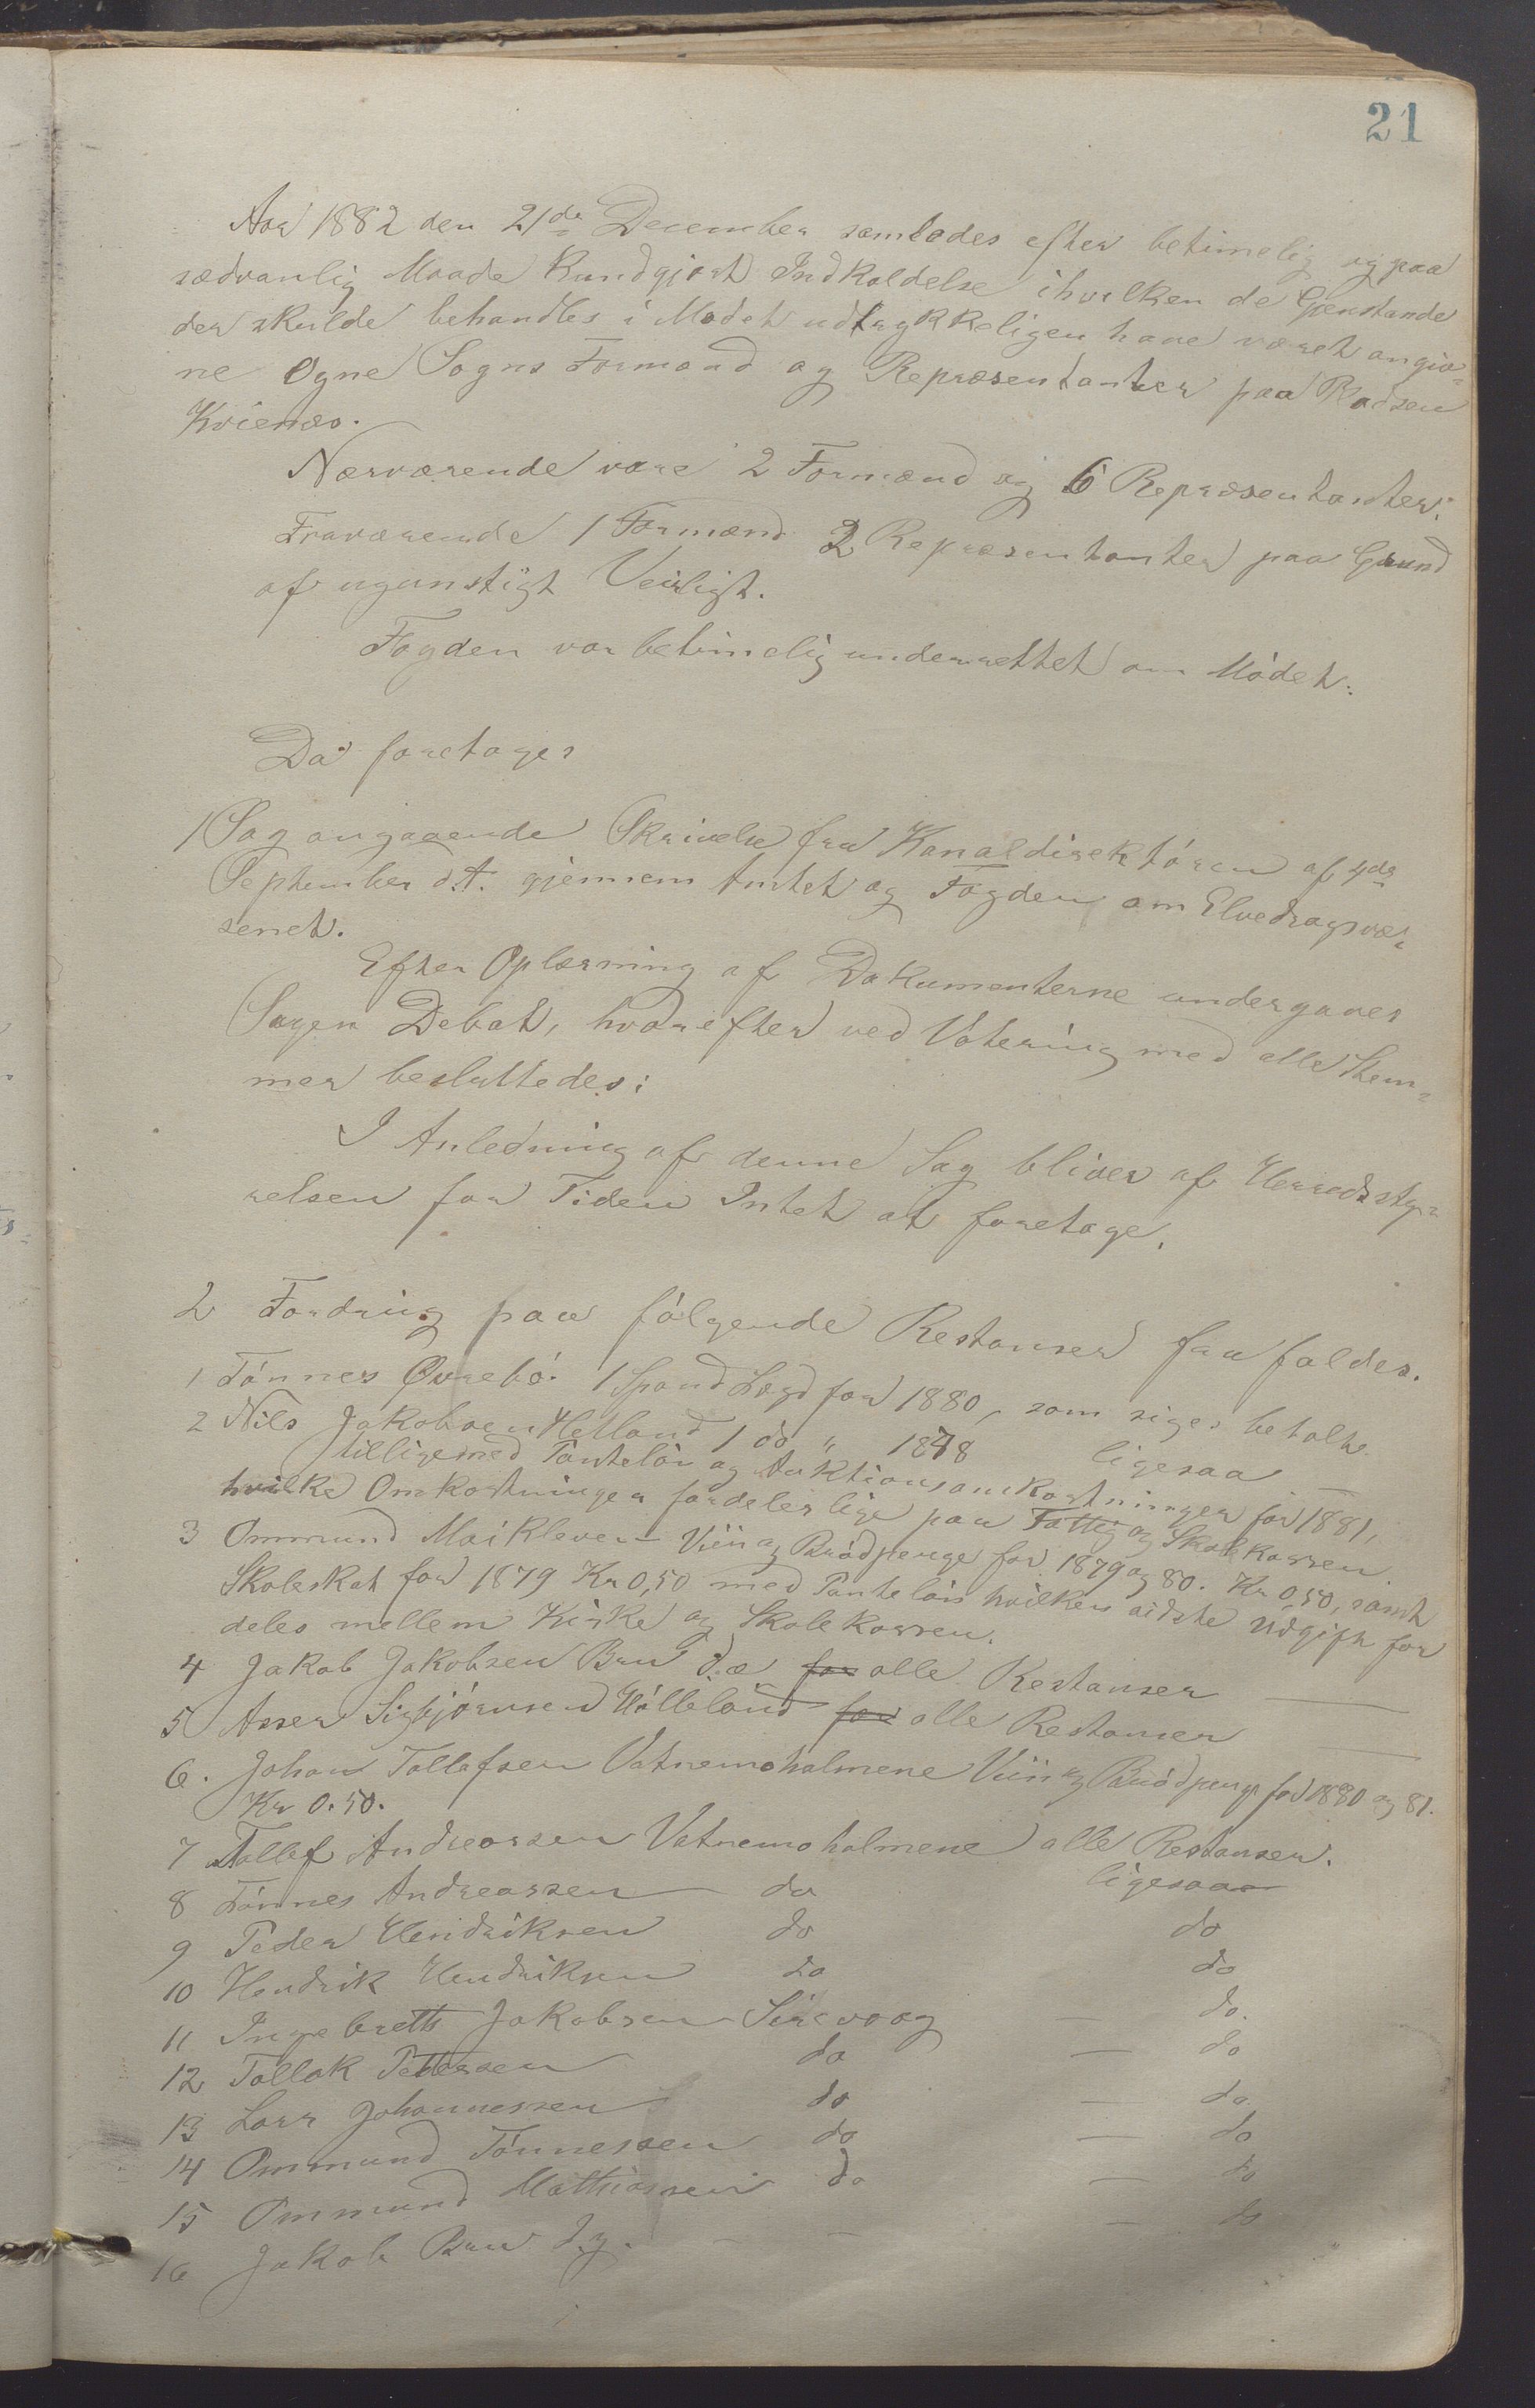 21
Aar 1882 den 21de December samledes efter betimelig og paa
sædvanlig Maade Kundgjort Indkaldelse i hvilken de Gjenstande
der skulde behandles i Mødet udtrykkeligen have været angiv-
ne Ogne Sogns Formænd og Repræsentanter paa Pladsen
Kvienæs.
Nærværende vare 2 Formænd og 6 Repræsentanter.
Fraværende 1 Formænd 2 Repræsentanter paa Grund
af ugunstigt Veirligt.
Fogden var betimelig underrettet om Mødet.
Da foretoges
1 Sag angaaende Skrivelse fra Kanaldirektøren af 4de
September d.A. gjennem Amtet og Fogden om Elvedragsvæ-
senet.
Efter Oplæsning af Dokumenterne undergaves
Sagen Debat, hvorefter ved Votering med alle Stem-
mer besluttedes:
I Anledning af denne Sag bliver af Herredssty-
relsen for Tiden Intet at foretage.
2 Fordring paa følgende Restanser frafaldes.
1 Tønnes Øvrebø. 1 Spand Lægd for 1880, som siges betalt.
2 Nils Jakobsen Hetland 1 do " 1878 ligesaa
tilligemed Panteløn og Auktionsomkostninger for 1881,
hvilke Omkostninger fordeles lige paa Fattig og Skolekassen.
3 Ommund Moikleven Viin og Brødpenge for 1879 og 80. Kr 0,50, samt
Skoleskat for 1879 Kr 0,50 med Panteløn hvilken sidste Udgift for
deles mellem Kirke og Skolekassen.
4 Jakob Jakobsen Bru d.æ for alle Restanser —
5 Asser Sigbjørnsen Hølleland for alle Restanser —
6. Johan Tollefsen Vatnemoholmene Viin og Brødpenge for 1880 og 81.
Kr 0.50.
7 Tollef Andreassen Vatnemoholmene alle Restanser.
8 Tønnes Andreassen do ligesaa
9 Peder Hendriksen do do
10 Hendrik Hendriksen do do
11 Ingebrett Jakobsen Sirevaag — do.
12 Tollak Pettersen do — do
13 Lars Johannessen do — do
14 Ommund Tønnessen do — do
15 Ommund Mathiassen do — do
16 Jakob Bru d.y. — — — do